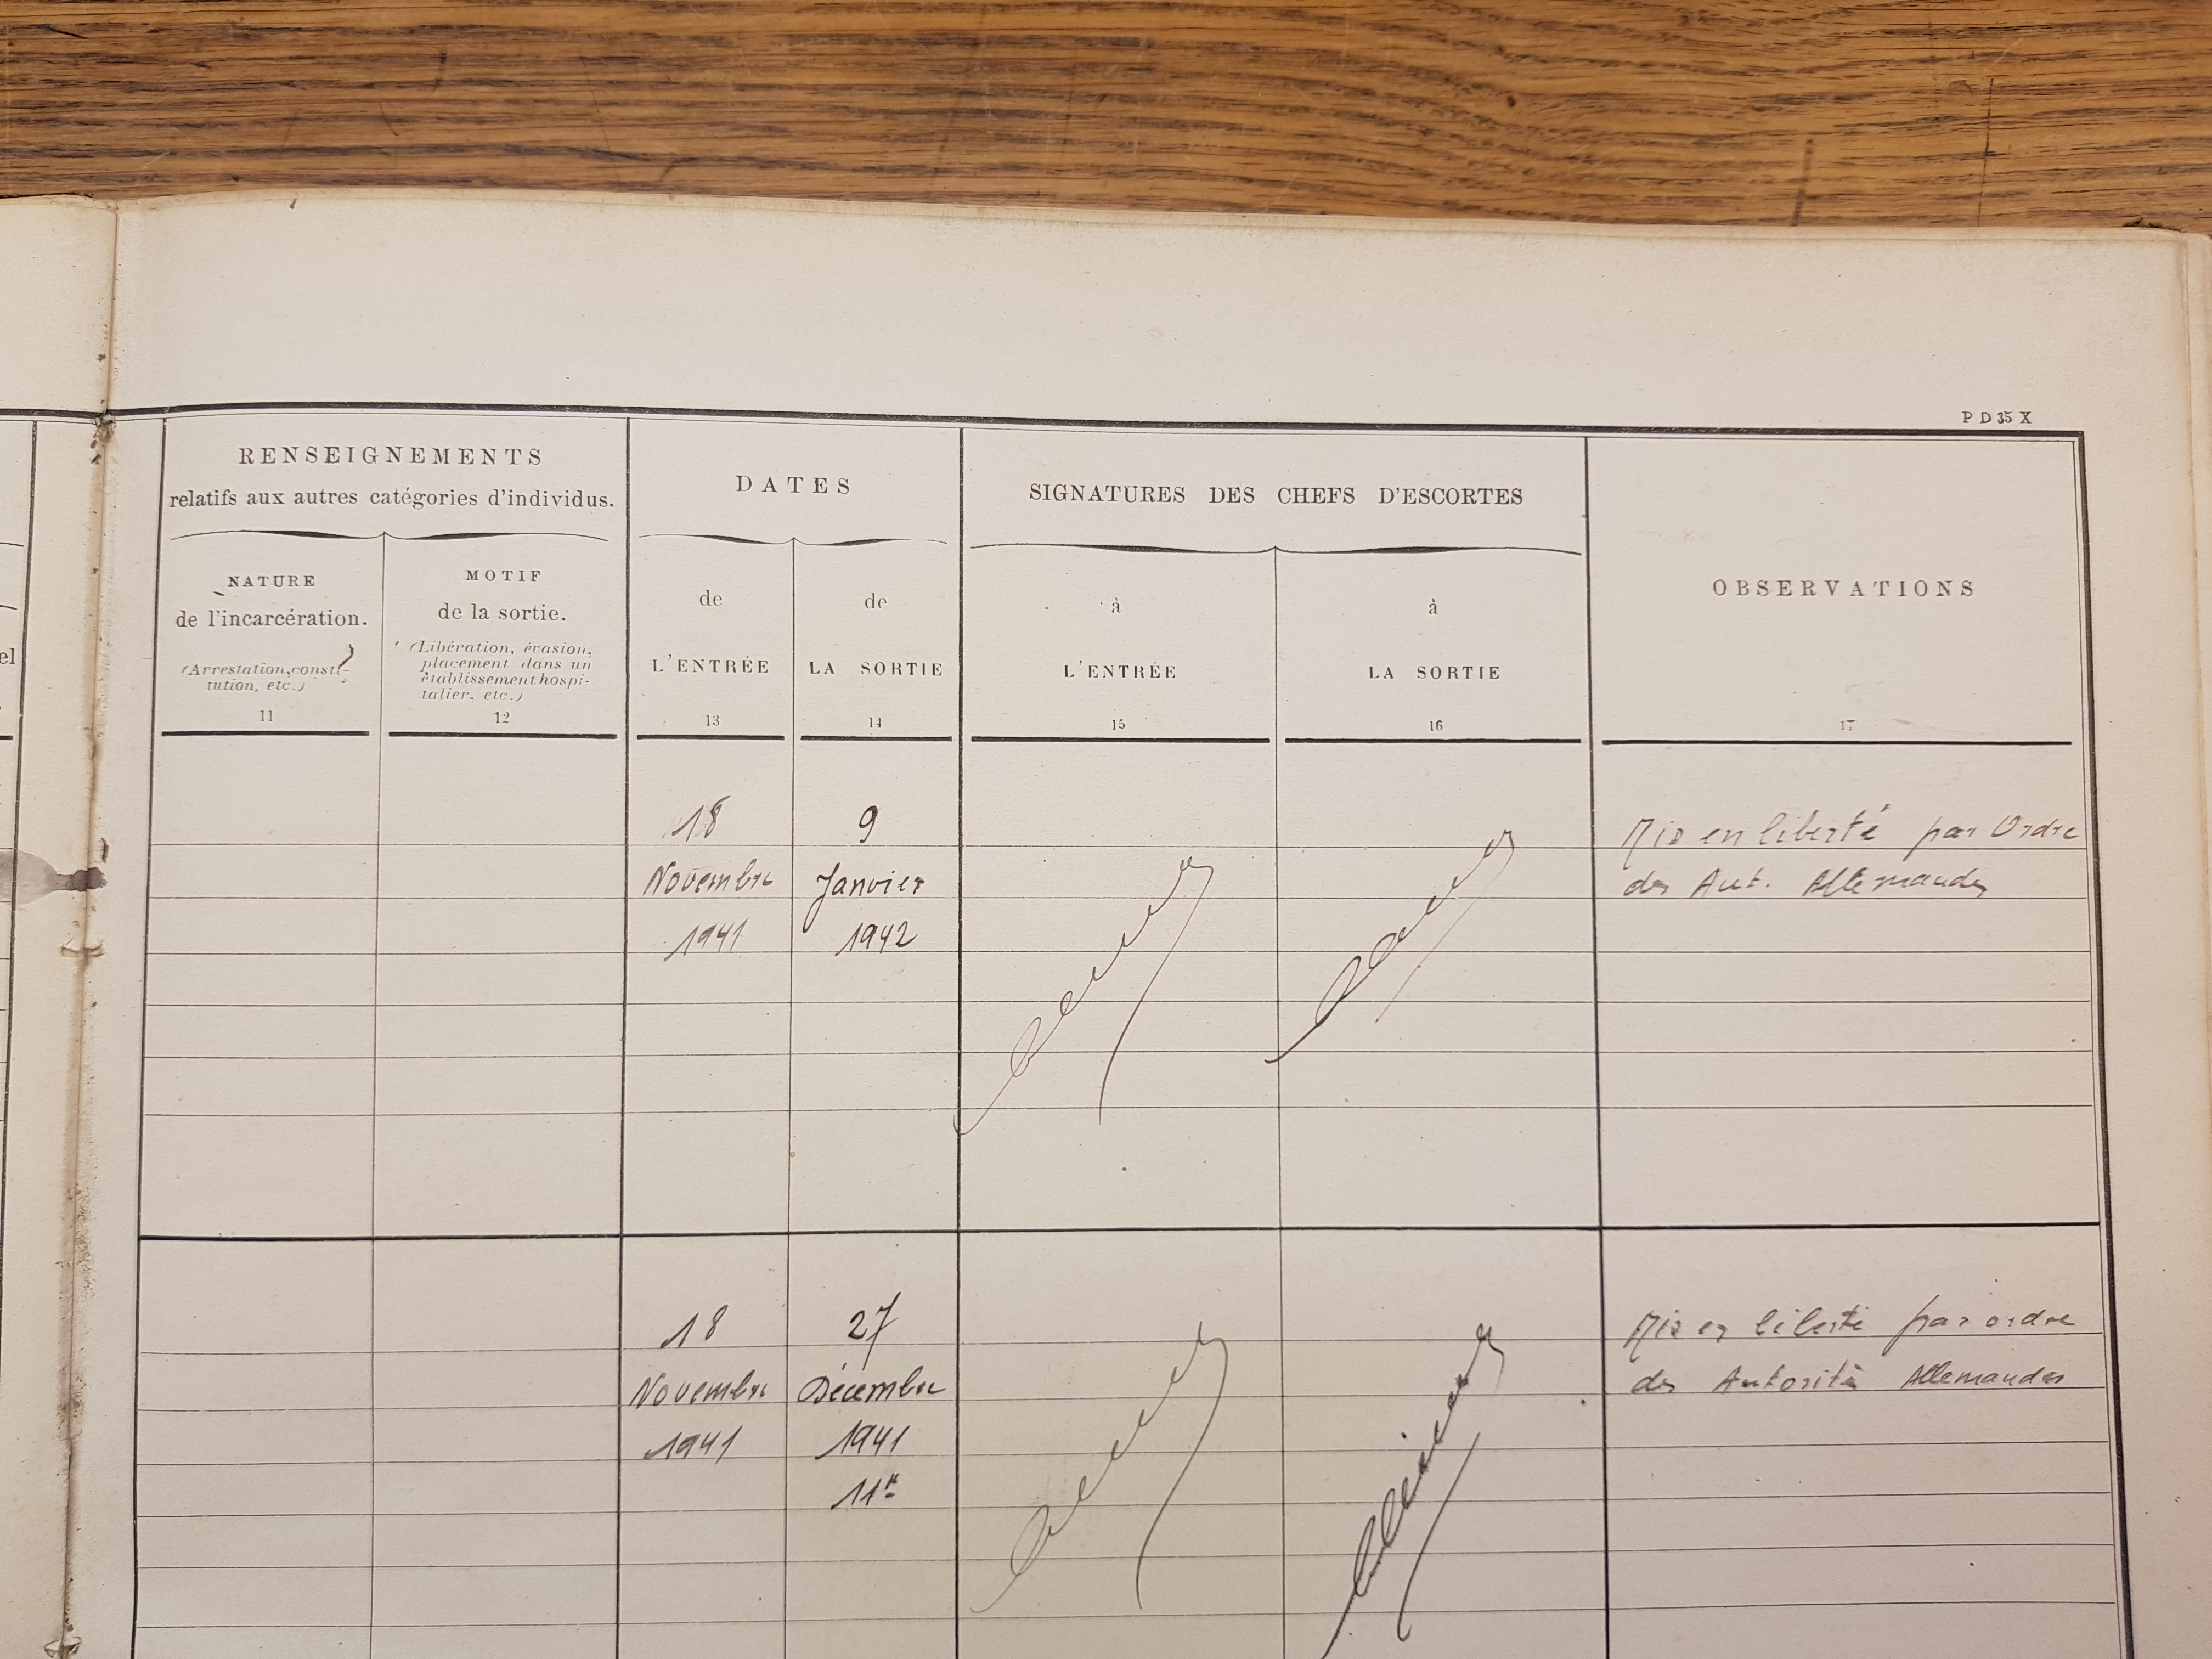 P D 35 X
RENSEIGNEMENTS
relatifs aux autres catégories d'individus.
NATURE
de l'incarcération.
(Arrestation, consti-
tution, etc.)
11
MOTIF
de la sortie.
(Libération, évasion,
placement dans un
établissement hospi-
talier, etc.)
12
DATES
de
L'ENTRÉE
13
de
LA SORTIE
14
SIGNATURES DES CHEFS D'ESCORTES
à
L'ENTRÉE
15
à
LA SORTIE
16
OBSERVATIONS
17
el
18
Novembre
1941
9
Janvier
1942
Mis en liberté par Ordre
des Aut. Allemandes
18
Novembre
1941
27
Décembre
1941
Mis en liberté par ordre
des Autorités Allemandes